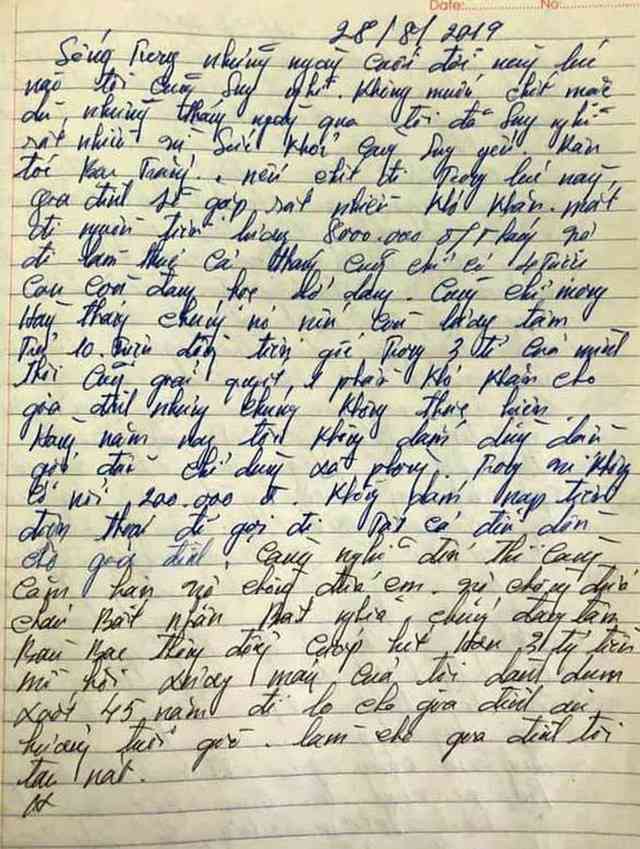 Date: No:
28/8/2019
Sống Trong những ngày cuối đời này lúc
nào tôi cũng suy nghĩ. Không muốn chết mặc
dù, những tháng ngày qua tôi đã suy nghĩ
rất nhiều vì sức khỏe ngày suy yếu
tôi . nếu chết đi Trong lúc này
gia đình sẽ gặp rất nhiều khó khăn. mất
đi nguồn tiền lương 8000.000 đ/Tháng vợ
đi làm thuê cả tháng cũng chỉ có 4 Triệu
con còn đang học dở dang. cũng chỉ mong
Hàng tháng chúng nó
Trả 10. Triệu đồng tiền gốc Trong 3 tỉ của mình
Thì cũng giải quyết, 1 phần khó khăn cho
gia đình nhưng chúng không thực hiện
Hàng năm nay tôi không dám dùng dầu
gội đầu chỉ dùng xà phòng. Trong ví không
có nổi 200.000 đ. không dám nạp tiền
điện thoại để gọi đi Tất cả để dồn
cho gia đình, càng nghĩ đến thì càng
căm hận vợ chồng đứa em. vợ chồng đứa
cháu Bất nhân Bất nghĩa, chúng đang tâm
thông đồng cướp hết Hơn 3 tỷ tiền
mồ hôi xương máu của tôi dành dụm
suốt 45 năm để lo cho gia đình
hưởng tuổi già. làm cho gia đình tôi
tan nát.